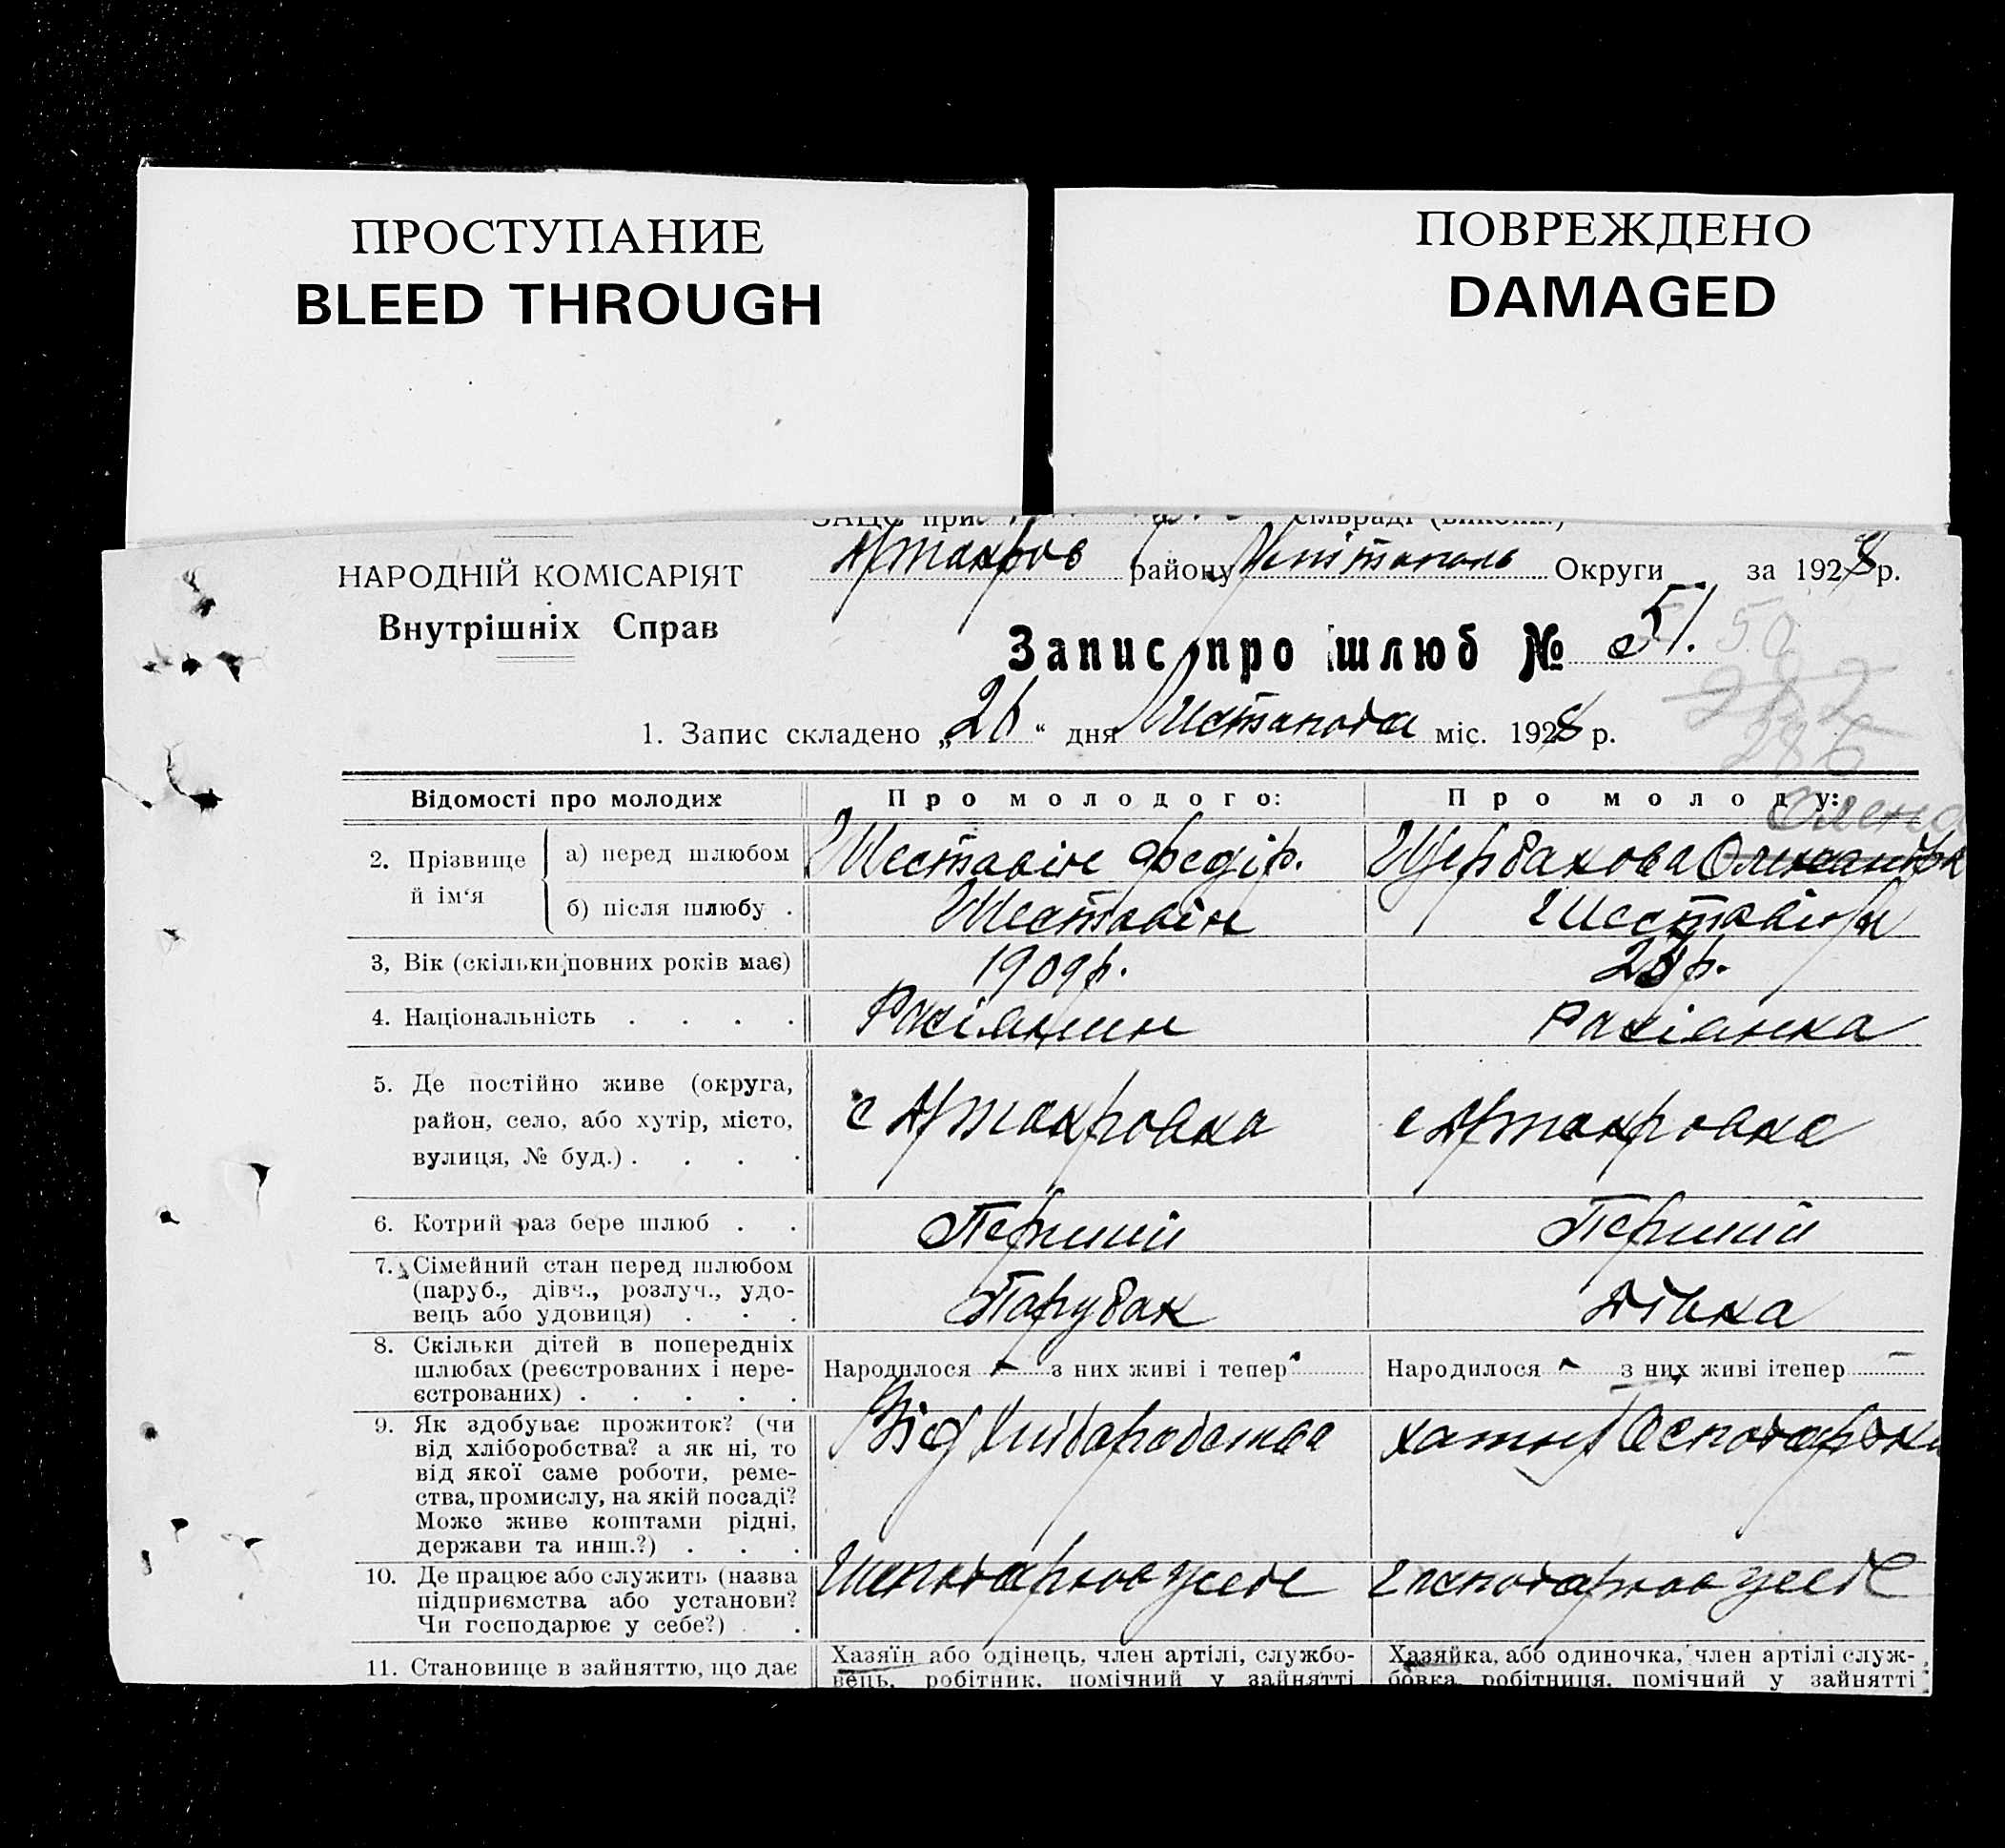 ПРОСТУПАНИЕ
BLEED THROUGH
ПОВРЕЖДЕНО
DAMAGED
ЗАЦС при сільраді
НАРОДНІЙ КОМІСАРІЯТ
Внутрішніх Справ
району Округи за 1928 р.
Запис про шлюб № 51.
50
282
286
1. Запис складено „26“ дня Листопада міс. 1928 р.
Відомості про молодих
Про молодого:
Про молоду:
Олена
2. Прізвище й ім‘я
а) перед шлюбом
Шеставін Федір.
Щербакова Олександра
б) після шлюбу .
Шеставін
Шеставіна
3, Вік (скільки повних років має)
1909 р.
4. Національність . . . .
Расіянин
Расіянка
5. Де постійно живе (округа,
район, село, або хутір, місто,
вулиця, № буд.) . . . .
с Артакровка
с Артакровка
6. Котрий раз бере шлюб . .
Перший
Перший
7. Сімейний стан перед шлюбом
(паруб., дівч., розлуч., удо-
вець або удовиця) . . .
Парубак
Дівка
8. Скільки дітей в попередніх
шлюбах (реєстрованих і нере-
єстрованих) . . . . .
Народилося - з них живі і тепер -
Народилося - з них живі ітепер -
9. Як здобуває прожиток? (чи
від хліборобства? а як ні, то
від якої саме роботи, реме-
ства, промислу, на якій посаді?
Може живе коштами рідні,
держави та инш.?) . . .
Від Хлібаробства
10. Де працює або служить (назва
підприємства або установи?
Чи господарює у себе?) . .
11. Становище в зайняттю, що дає
Хазяїн або одінець, член артілі, службо-
вець, робітник, помічний у зайнятті
Хазяйка, або одиночка, член артілі служ-
бовка, робітниця, помічний у зайнятті